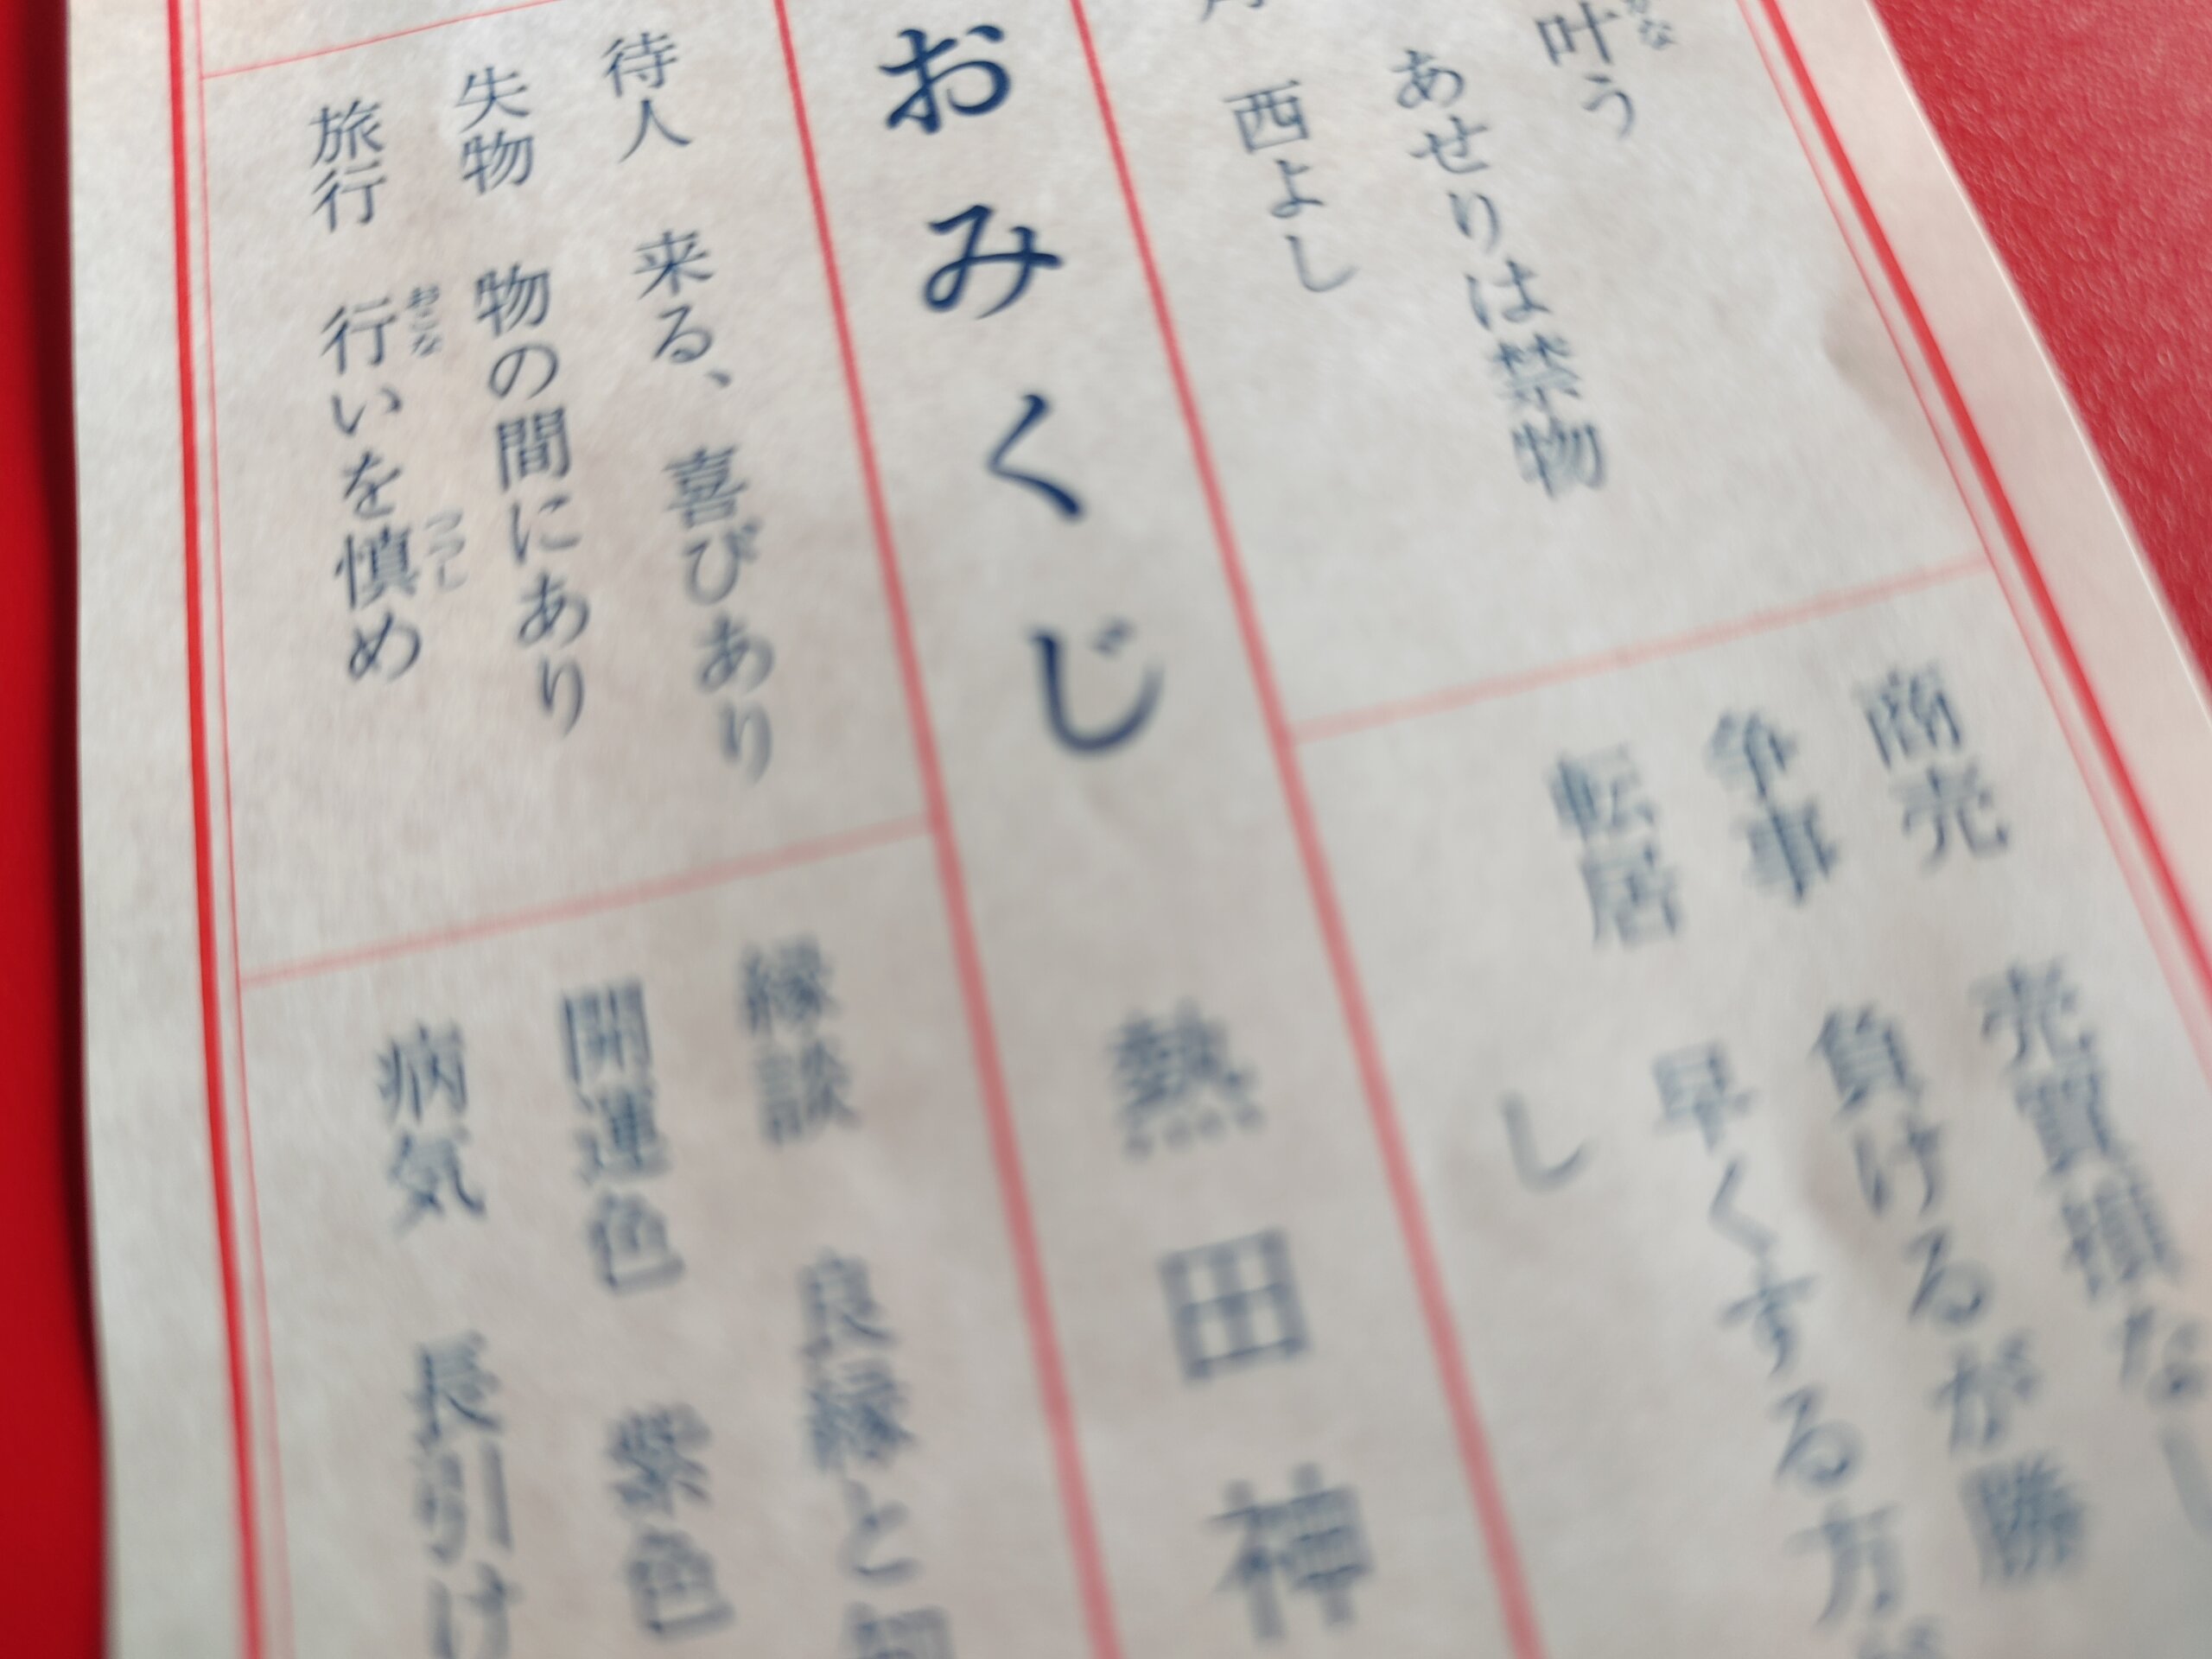 叶う
あせりは禁物
西よし
商売　売買損なし
争事　負けるが勝
転居　早くする方が
し
おみくじ　熱田神
待人　来る、喜びあり
失物　物の間にあり
旅行　行いを慎め
縁談　良縁と
開運色　紫色
病気　長引け